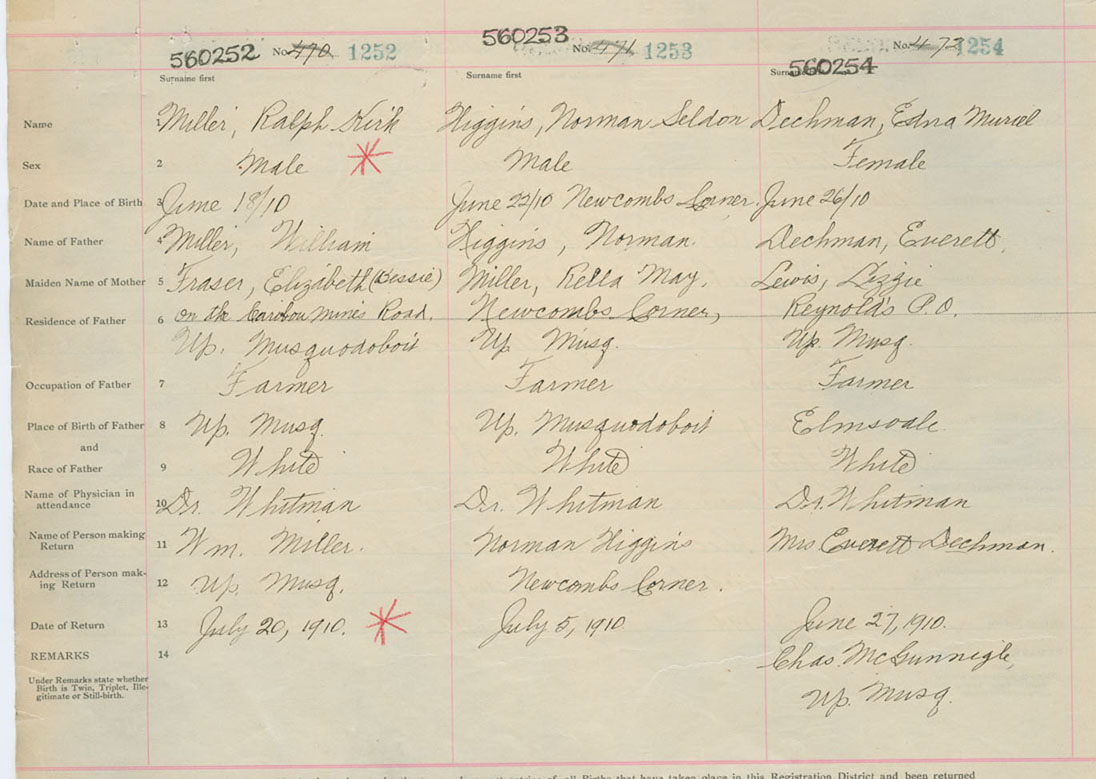 560252 No. 470 1252 560253 No. 471 1253 No. 472 1254
560254
Surname first Surname first Surname first
Name 1 Miller, Ralph Kirk Higgins, Norman Seldon Dechman, Edna Muriel
Sex 2 Male Male Female
Date and Place of Birth 3 June 18/10 June 22/10 Newcombs Corner. June 26/10
Name of Father 4 Miller, William Higgins, Norman. Dechman, Everett.
Maiden Name of Mother 5 Fraser, Elizabeth (Bessie) Miller, Rella May. Lewis, Lizzie
Residence of Father 6 on the Caribou Mines Road. Newcombs Corner, Reynolds P.O.
Up. Musquodoboit Up Musq. Up. Musq.
Occupation of Father 7 Farmer Farmer Farmer
Place of Birth of Father 8 Up. Musq. Up. Musquodoboit Elmsvale.
and
Race of Father 9 White White White
Name of Physician in
attendance 10 Dr. Whitman Dr. Whitman Dr. Whitman
Name of Person making
Return 11 Wm. Miller. Norman Higgins Mrs Everett Dechman.
Address of Person mak-
ing Return 12 Up. Musq. Newcombs Corner.
Date of Return 13 July 20, 1910. July 5, 1910 June 27, 1910.
REMARKS 14 Chas. McGunnigle,
Under Remarks state whether
Birth is Twin, Triplet, Ille-
gitimate or Still-birth.
Up. Musq.
of all Births that have taken place in this Registration District and been returned